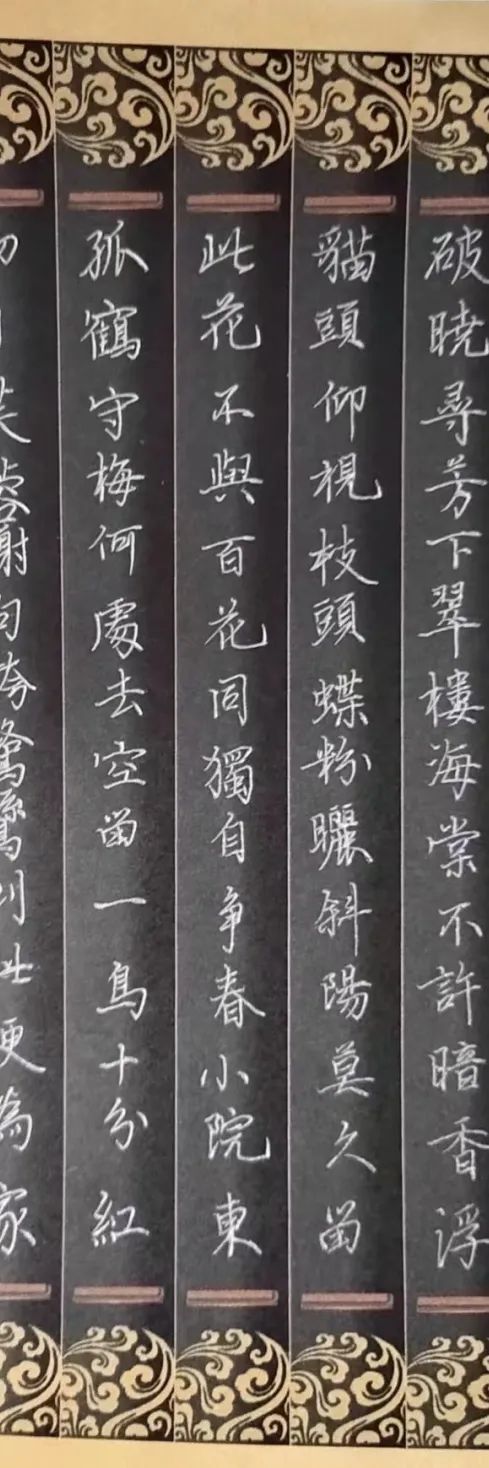 破曉尋芳下翠樓海棠不許暗香浮
貓頭仰視枝頭蝶粉曬斜陽莫久留
此花不與百花同獨自争春小院東
孤鶴守梅何處去空留一鳥十分紅
謝句誇鴛鴦到此便為家